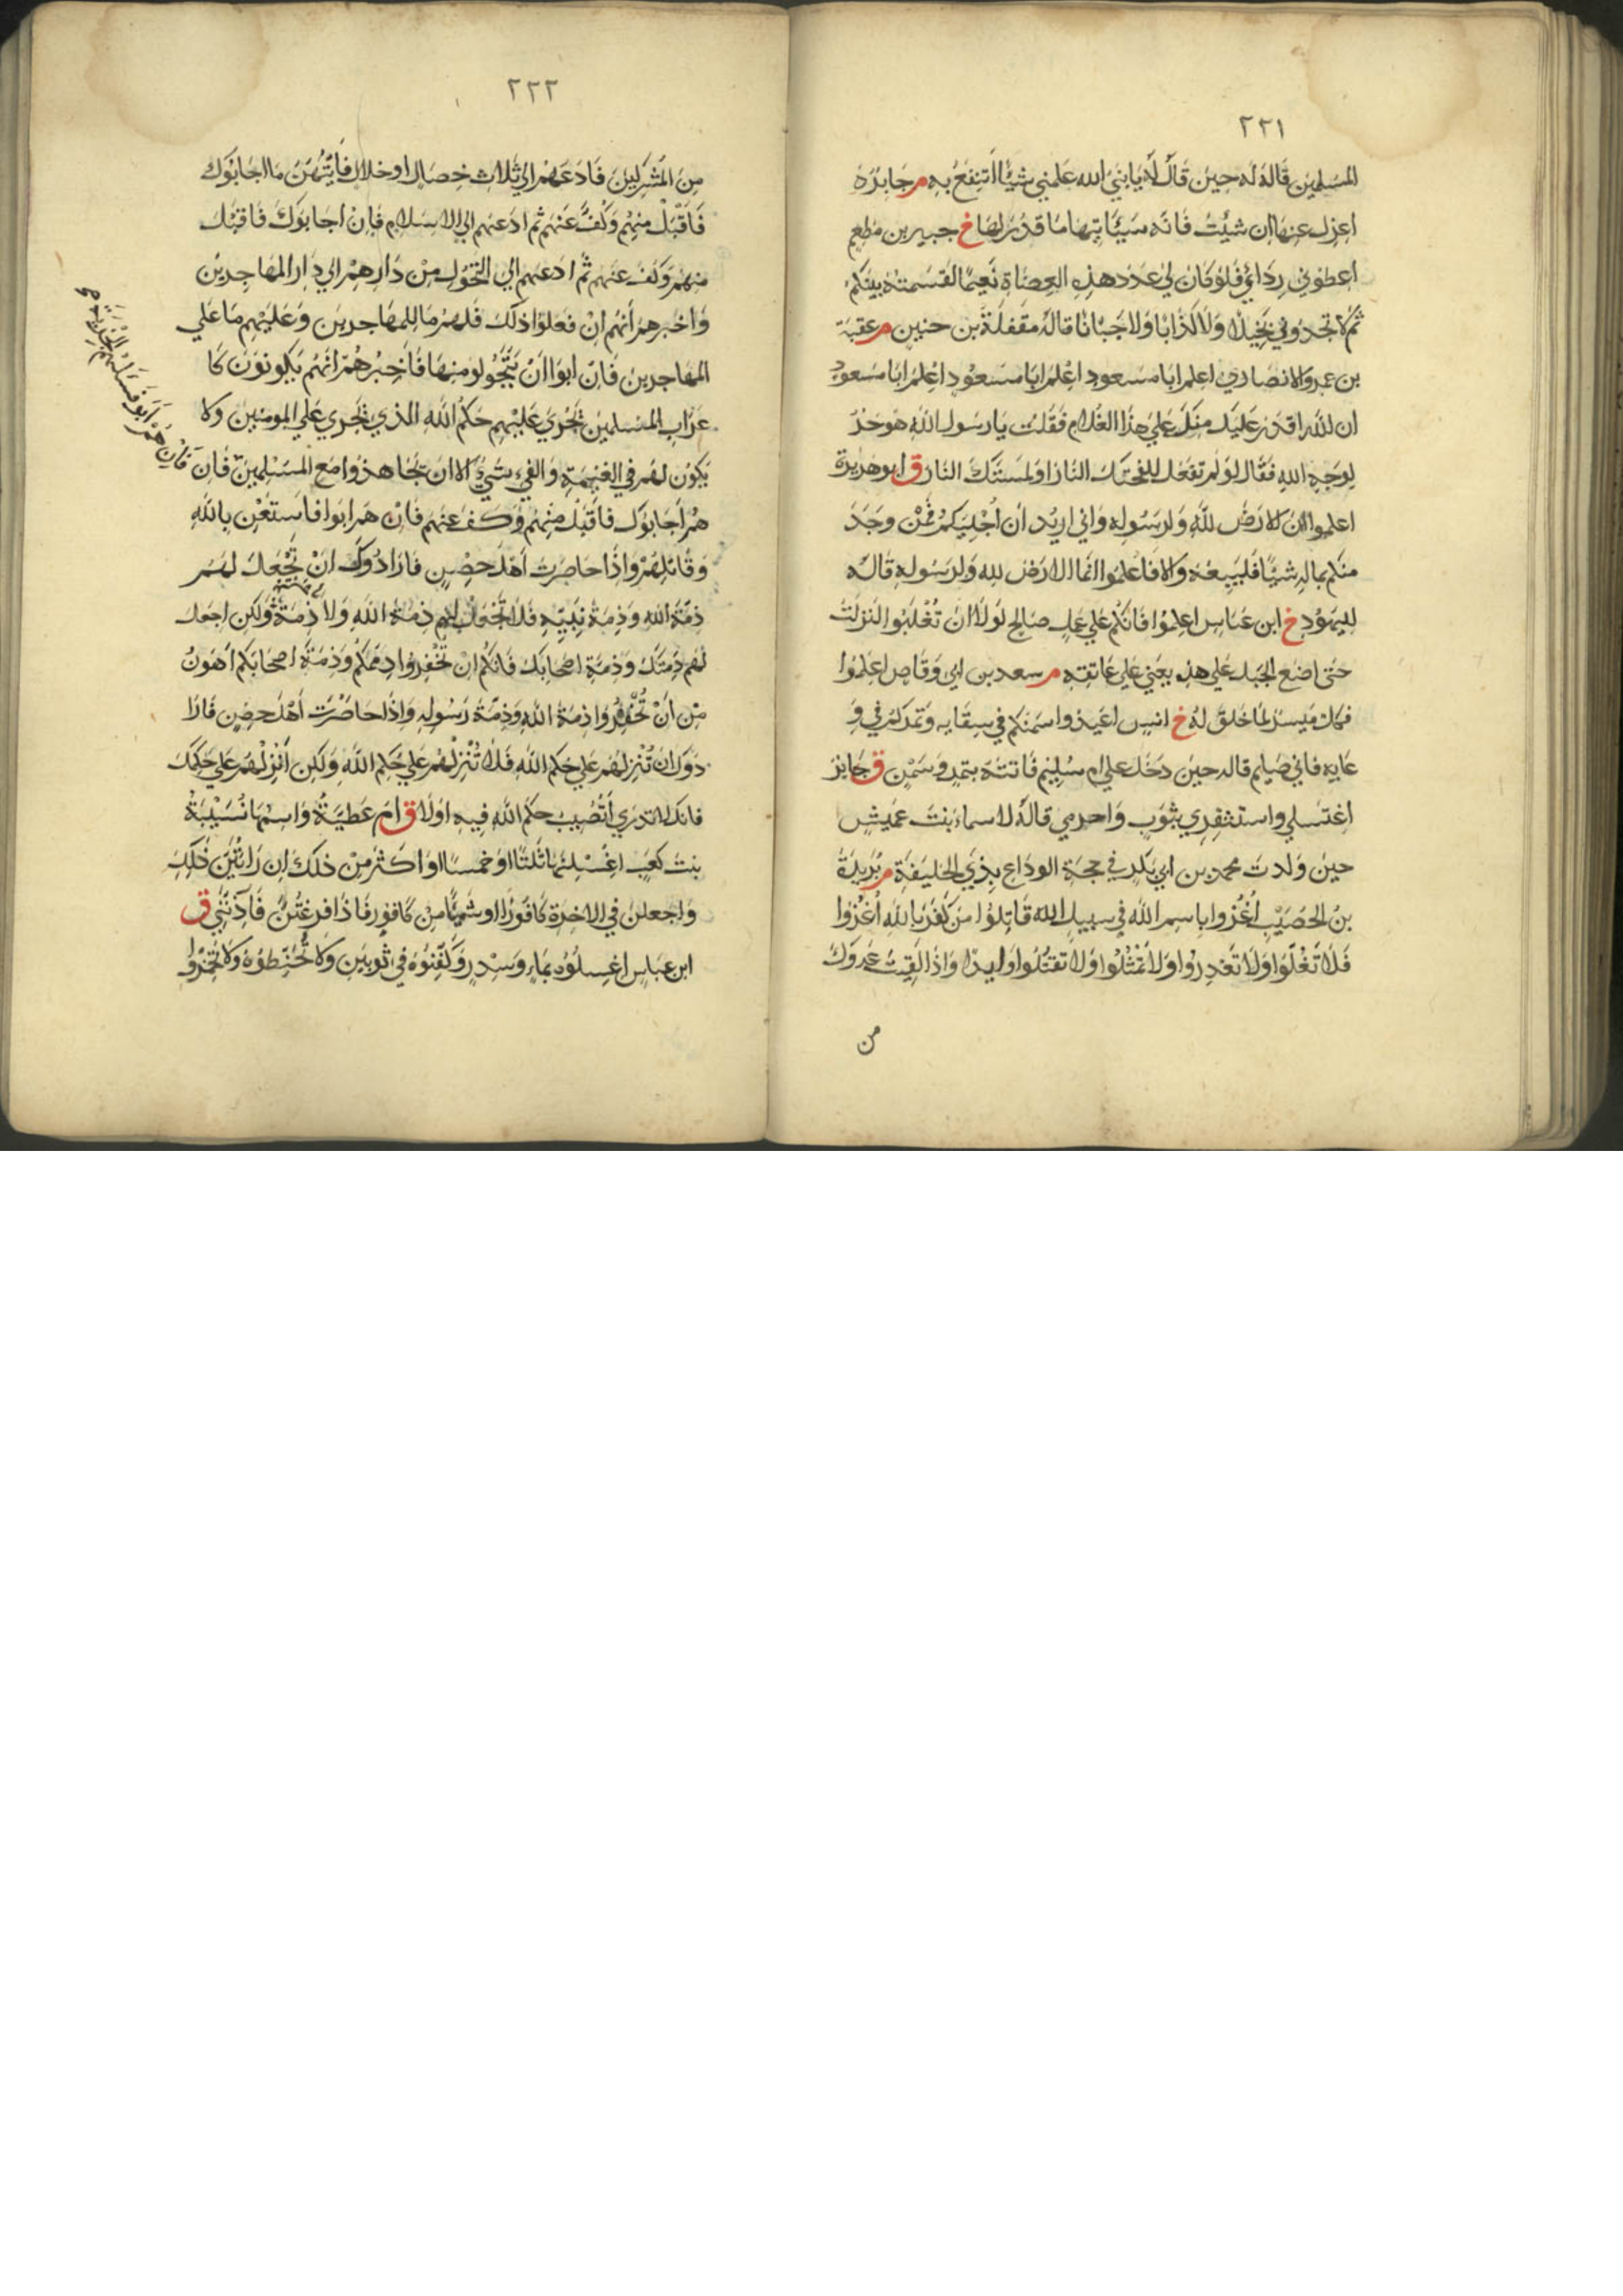 ٢٢١
المسلمين قاله له حين قال له يا نبي الله علمني شيئا انتفع به م جابر رَه
اعزل عنها ان شئت فانه سيأتيها ما قدر لها خ جبير بن مطعم
اعطوني ردائي فلو كان لي عدد هذه العضاة نعيما لقسمته بينكم
ثم لا تجدوني بخيلا ولا كذابا ولا جبانا قاله مقفلة بن حنين م عقبة
بن عمرو الانصاري اعلم ابا مسعود اعلم ابا مسعود اعلم ابا مسعود
ان لله اقدر عليك منك على هذا الغلام فقلت يا رسول الله هو حر
لوجه الله فقال لو لم تفعل للفحتك النار او لمستك النار ق ابو هريرة
اعلموا ان الارض لله ولرسوله واني اريد ان اجليكم فمن وجد
منكم بماله شيئا فليبعه والا فاعلموا انما الارض لله ولرسوله قاله
لليهود خ ابن عباس اعملوا فانكم على عمل صالح لولا ان تغلبوا لنزلت
حتى اضع الحبل على هذه يعني على عاتقه م سعد بن ابي وقاص اعملوا
فكل ميسر لما خلق له خ انس اعيدوا سمنكم في سقايه وتمركم في و
عايه فاني صايم قاله حين دخل على ام سليم فاتته بتمر وسمن ق جابر
اغتسلي واستثفري بثوب واحرمي قاله لاسماء بنت عميس
حين ولدت محمد بن ابي بكر في حجة الوداع بذي الحليفة م بريدة
بن الحصيب اغزوا باسم الله في سبيل الله قاتلوا من كفر بالله اغزوا
فلا تغلوا ولا تغدروا ولا تمثلوا ولا تقتلوا وليدا واذا لقيت عدوك
من
٢٢٢
من المشركين فادعهم الي ثلاث خصال او خلال فأيتهن ما اجابوك
فاقبل منهم وكف عنهم ثم ادعهم الي الاسلام فان اجابوك فاقبل
منهم وكف عنهم ثم ادعهم الي التحول من دارهم الي دار المهاجرين
واخبرهم انهم ان فعلوا ذلك فلهم ما للمهاجرين وعليهم ما علي
المهاجرين فان ابوا ان يتحولو منها فأخبرهم انهم يكونون كا
عراب المسلمين تجري عليهم حكم الله الذي تجري علي المومنين ولا
يكون لهم في الغنيمة والفيء شيء الا ان يجاهدوا مع المسلمين فان
هم اجابوك فاقبل منهم وكف عنهم فان هم ابوا فاستعن بالله
وقاتلهم واذا حاصرت اهل حصن فارادوك ان تجعل لهم
ذمة الله وذمة نبيه فلا تجعل لهم ذمة الله ولا ذمة نبيه ولكن اجعل
لهم ذمتك وذمة اصحابك فانكم ان تخفروا ذممكم وذمة اصحابكم اهون
من ان تخفروا ذمة الله وذمة رسوله واذا حاصرت اهل حصن فارا
دوك ان تنزلهم علي حكم الله فلا تنزلهم علي حكم الله ولكن انزلهم علي حكمك
فانك لا تدري أتصيب حكم الله فيه او لا ق ام عطية واسمها نسيبة
بنت كعب اغسلنها ثلثا او خمسا او اكثر من ذلك ان رأيتن ذلك
واجعلن في الاخرة كافورا او شيئا من كافور فاذا فرغتن فآذنني ق
ابن عباس اغسلوه بماء وسدر وكفنوه في ثوبين ولا تحنطوه ولا تخمروا
فان هم ابو فسلهم الجزية صح